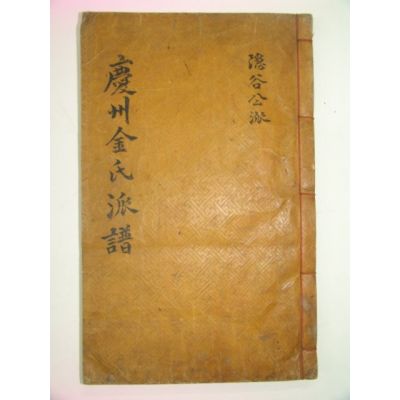 慶州金氏派譜
隱谷公派